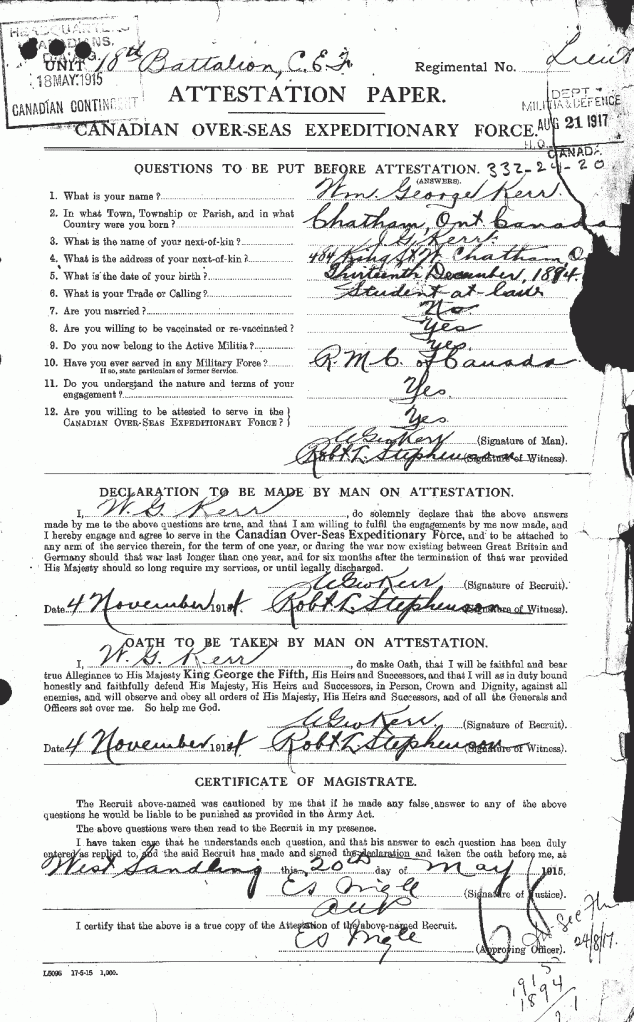 HEADQUARTERS
CANADIANS.
UNIT 18th Battalion, C.E.F.
Regimental No. Lieut
18 MAY. 1915
CANADIAN CONTINGENT
ATTESTATION PAPER.
DEPT
MILITIA & DEFENCE
AUG 21 1917
H.Q. CANADA
CANADIAN OVER-SEAS EXPEDITIONARY FORCE.
QUESTIONS TO BE PUT BEFORE ATTESTATION. 332-24-20
(ANSWERS).
1. What is your name? Wm. George Kerr
2. In what Town, Township or Parish, and in what
Country were you born? Chatham, Ont Canada
3. What is the name of your next-of-kin? J. G. Kerr
4. What is the address of your next-of-kin? 484 King St W. Chatham O
5. What is the date of your birth? Thirteenth December, 1894.
6. What is your Trade or Calling? Student at-law
7. Are you married? No
8. Are you willing to be vaccinated or re-vaccinated? Yes
9. Do you now belong to the Active Militia? Yes
10. Have you ever served in any Military Force? R.M.C. of Canada
If so, state particulars of former Service.
11. Do you understand the nature and terms of your
engagement? Yes.
12. Are you willing to be attested to serve in the
CANADIAN OVER-SEAS EXPEDITIONARY FORCE? Yes.
W Geo Kerr (Signature of Man).
Robt L Stephenson (Signature of Witness).
DECLARATION TO BE MADE BY MAN ON ATTESTATION.
I, W. G. Kerr, do solemnly declare that the above answers
made by me to the above questions are true, and that I am willing to fulfil the engagements by me now made, and
I hereby engage and agree to serve in the Canadian Over-Seas Expeditionary Force, and to be attached to
any arm of the service therein, for the term of one year, or during the war now existing between Great Britain and
Germany should that war last longer than one year, and for six months after the termination of that war provided
His Majesty should so long require my services, or until legally discharged.
W Geo Kerr (Signature of Recruit).
Date 4 November 1914 Robt L Stephenson (Signature of Witness).
OATH TO BE TAKEN BY MAN ON ATTESTATION.
I, W. G. Kerr, do make Oath, that I will be faithful and bear
true Allegiance to His Majesty King George the Fifth, His Heirs and Successors, and that I will as in duty bound
honestly and faithfully defend His Majesty, His Heirs and Successors, in Person, Crown and Dignity, against all
enemies, and will observe and obey all orders of His Majesty, His Heirs and Successors, and of all the Generals and
Officers set over me. So help me God.
W Geo Kerr (Signature of Recruit).
Date 4 November 1914 Robt L Stephenson (Signature of Witness).
CERTIFICATE OF MAGISTRATE.
The Recruit above-named was cautioned by me that if he made any false answer to any of the above
questions he would be liable to be punished as provided in the Army Act.
The above questions were then read to the Recruit in my presence.
I have taken care that he understands each question, and that his answer to each question has been duly
entered as replied to, and the said Recruit has made and signed the declaration and taken the oath before me, at
West Sandling this 20th day of May 1915.
(Signature of Justice)
I certify that the above is a true copy of the Attestation of the above-named Recruit.
(Approving Officer).
24/8/17.
L5096 17-5-15 1,000.
1915
1894